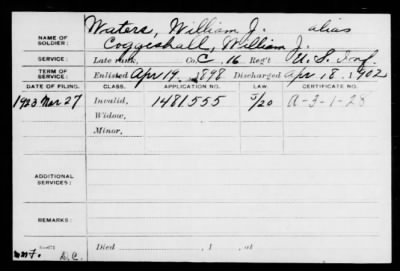 NAME OF SOLDIER: Waters, William J. alias
Coggeshall, William J.
SERVICE: Late rank, Co. C, 16 Reg't U. S. Inf.
TERM OF SERVICE: Enlisted Apr 19, 1898 Discharged Apr 18, 1902
DATE OF FILING. CLASS. APPLICATION NO. LAW. CERTIFICATE NO.
1923 Mar 27 Invalid, 1481555 5/20 A-3-1-28
Widow,
Minor,
ADDITIONAL SERVICES:
REMARKS:
Died , 1 , at